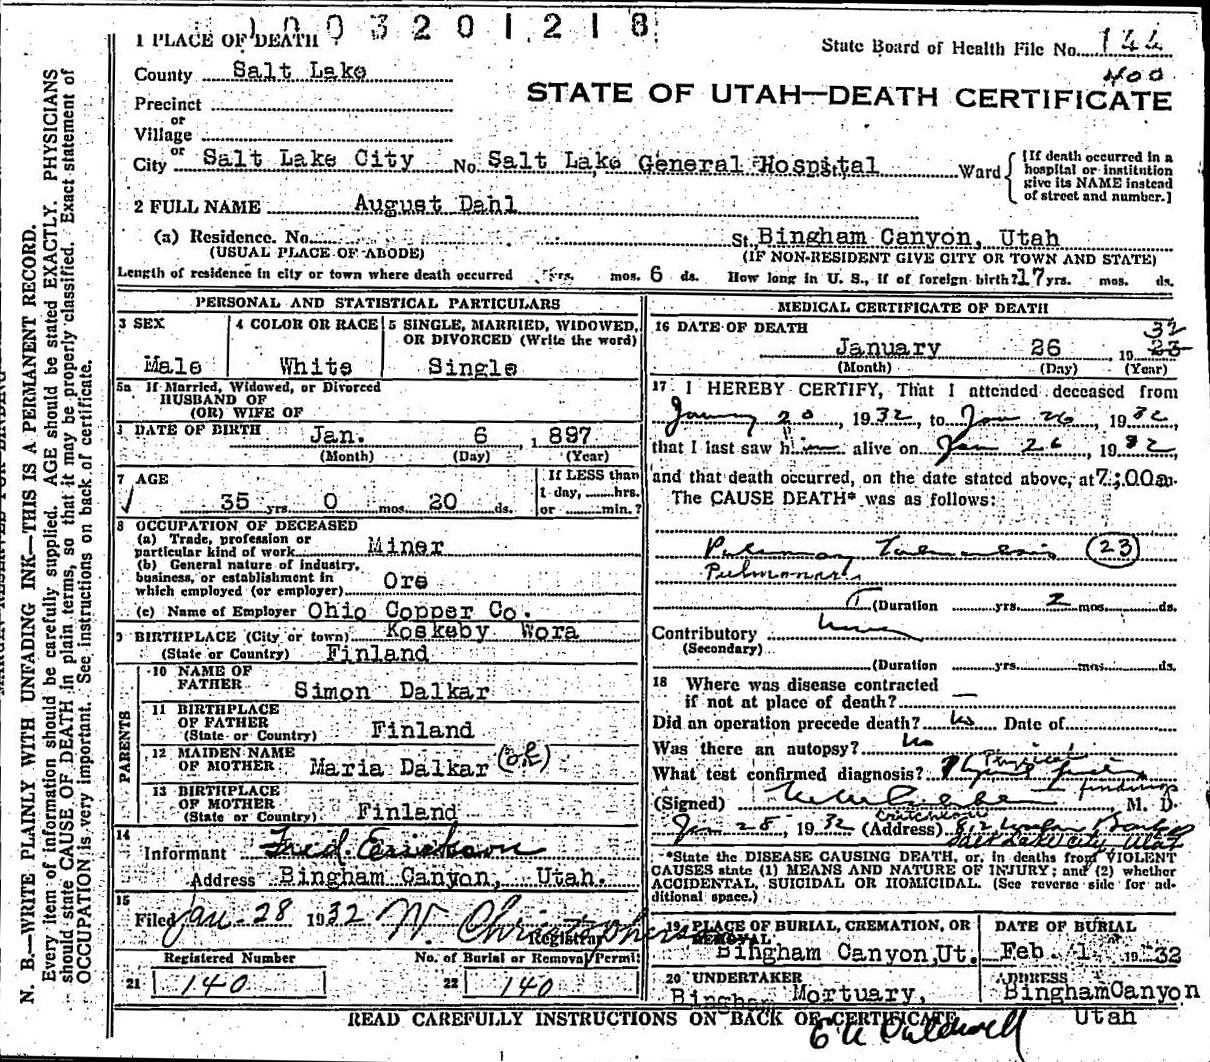 1003201218
1 PLACE OF DEATH
State Board of Health File No. 144
400
County Salt Lake
STATE OF UTAH—DEATH CERTIFICATE
Precinct
or
Village
or
City Salt Lake City No. Salt Lake General Hospital Ward
[If death occurred in a hospital or institution give its NAME instead of street and number.]
2 FULL NAME August Dahl
(a) Residence. No. St. Bingham Canyon, Utah
(USUAL PLACE OF ABODE) (IF NON-RESIDENT GIVE CITY OR TOWN AND STATE)
Length of residence in city or town where death occurred yrs. mos. 6 ds. How long in U. S., if of foreign birth? 17 yrs. mos. ds.
PERSONAL AND STATISTICAL PARTICULARS
3 SEX
Male
4 COLOR OR RACE
White
5 SINGLE, MARRIED, WIDOWED, OR DIVORCED (Write the word)
Single
5a If Married, Widowed, or Divorced
HUSBAND OF
(OR) WIFE OF
DATE OF BIRTH Jan. 6, 1897
(Month) (Day) (Year)
7 AGE
35 yrs. 0 mos. 20 ds.
If LESS than
1 day, hrs.
or min.?
8 OCCUPATION OF DECEASED
(a) Trade, profession or
particular kind of work Miner
(b) General nature of industry,
business, or establishment in
which employed (or employer) Ore
(c) Name of Employer Ohio Copper Co.
9 BIRTHPLACE (City or town) Koskeby Wora
(State or Country) Finland
PARENTS
10 NAME OF
FATHER Simon Dalkar
11 BIRTHPLACE
OF FATHER
(State or Country) Finland
12 MAIDEN NAME
OF MOTHER Maria Dalkar (ok)
13 BIRTHPLACE
OF MOTHER
(State or Country) Finland
14
Informant Fred Erickson
Address Bingham Canyon, Utah.
15
Filed Jan-28 1932 W. Christopherson
Registrar
Registered Number No. of Burial or Removal Permit
21 140 22 140
MEDICAL CERTIFICATE OF DEATH
16 DATE OF DEATH
32
January 26, 19 23
(Month) (Day) (Year)
17 I HEREBY CERTIFY, That I attended deceased from
January 20, 1932, to Jan 26 1932,
that I last saw him alive on Jan 26, 1932,
and that death occurred, on the date stated above, at 7:00a m.
The CAUSE DEATH* was as follows:
Pulmonary Tuberculosis (23)
Pulmonary
(Duration yrs. 2 mos. ds.
Contributory
(Secondary)
(Duration yrs. mos. ds.
18 Where was disease contracted
if not at place of death? —
Did an operation precede death? no Date of
Was there an autopsy? no
What test confirmed diagnosis? Physical
findings
(Signed) , M. D.
Jan 28, 1932 (Address)
Salt Lake City, Utah
*State the DISEASE CAUSING DEATH, or, in deaths from VIOLENT
CAUSES state (1) MEANS AND NATURE OF INJURY; and (2) whether
ACCIDENTAL, SUICIDAL OR HOMICIDAL. (See reverse side for ad-
ditional space.)
19 PLACE OF BURIAL, CREMATION, OR
REMOVAL
Bingham Canyon, Ut.
DATE OF BURIAL
Feb. 1 19 32
20 UNDERTAKER
Bingham Mortuary,
ADDRESS
Bingham Canyon
Utah
READ CAREFULLY INSTRUCTIONS ON BACK OF CERTIFICATE
N. B.—WRITE PLAINLY WITH UNFADING INK—THIS IS A PERMANENT RECORD.
Every item of information should be carefully supplied. AGE should be stated EXACTLY. PHYSICIANS
should state CAUSE OF DEATH in plain terms, so that it may be properly classified. Exact statement of
OCCUPATION is very important. See instructions on back of certificate.